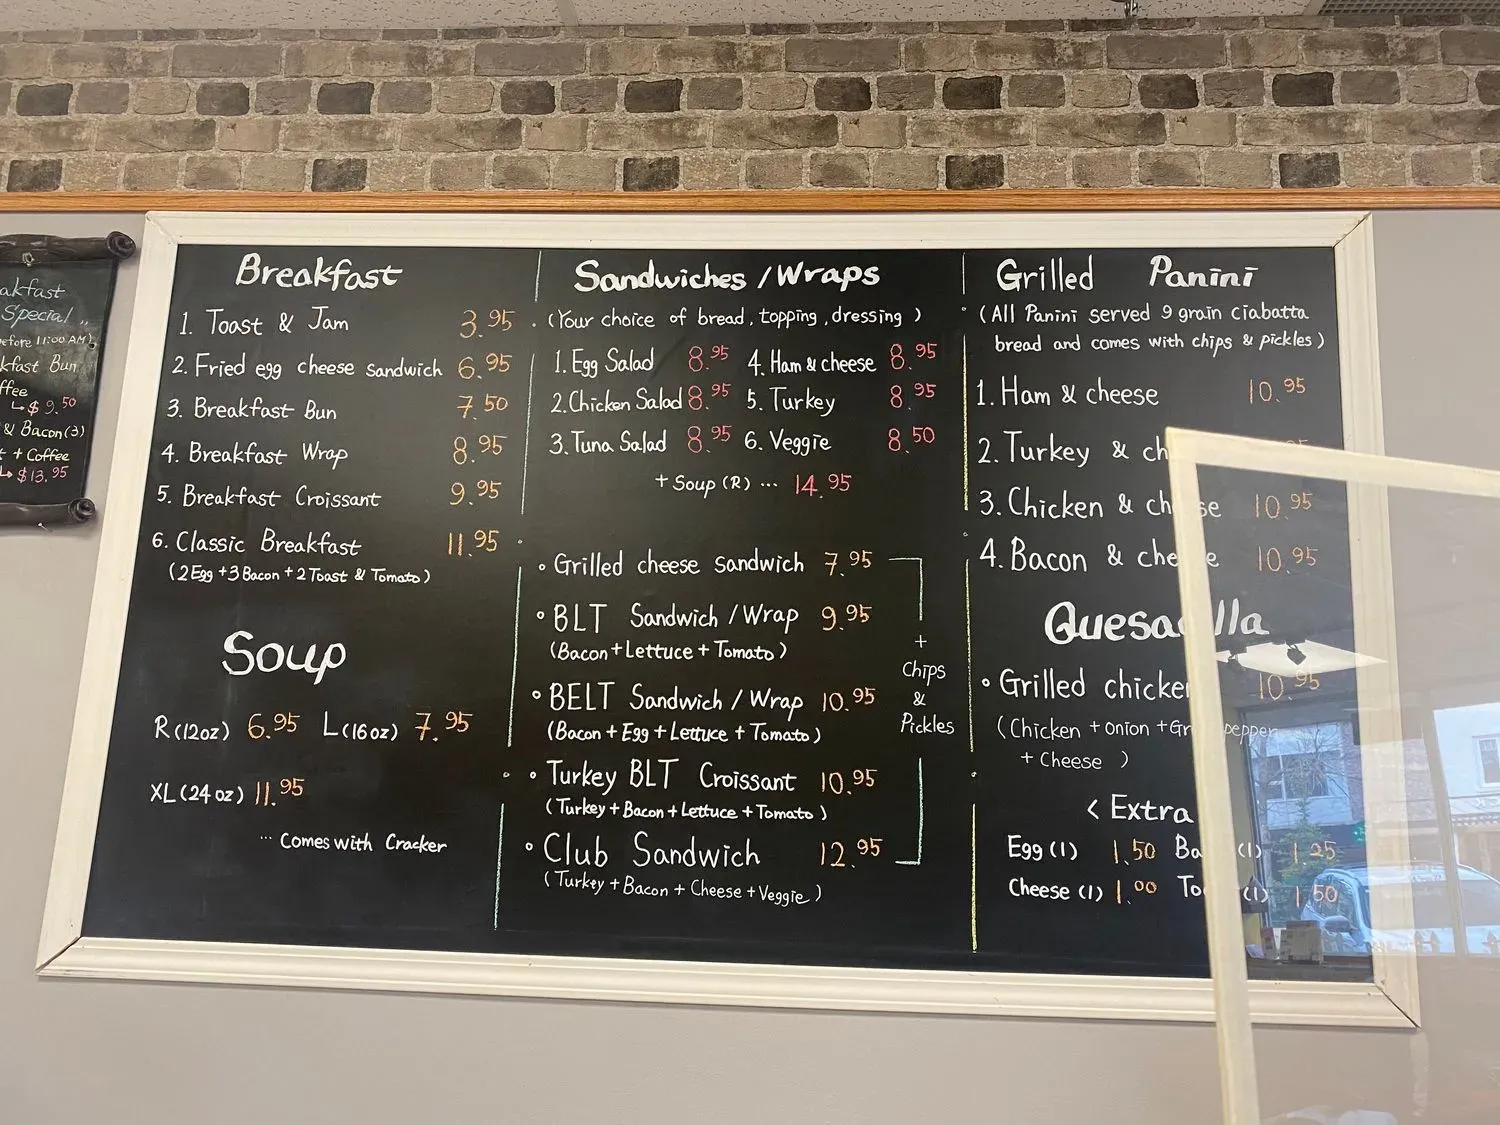 akfast
Special
efore 11:00 AM)
kfast Bun
ffee
↳ $9.50
& Bacon (3)
+ Coffee
↳ $13.95
Breakfast
1. Toast & Jam 3.95
2. Fried egg cheese sandwich 6.95
3. Breakfast Bun 7.50
4. Breakfast Wrap 8.95
5. Breakfast Croissant 9.95
6. Classic Breakfast 11.95
(2 Egg + 3 Bacon + 2 Toast & Tomato)
Soup
R (12oz) 6.95 L (16oz) 7.95
XL (24oz) 11.95
... Comes with Cracker
Sandwiches / Wraps
(Your choice of bread, topping, dressing)
1. Egg Salad 8.95 4. Ham & cheese 8.95
2. Chicken Salad 8.95 5. Turkey 8.95
3. Tuna Salad 8.95 6. Veggie 8.50
+ Soup (R) ... 14.95
• Grilled cheese sandwich 7.95
• BLT Sandwich / Wrap 9.95
(Bacon + Lettuce + Tomato)
• BELT Sandwich / Wrap 10.95
(Bacon + Egg + Lettuce + Tomato)
• Turkey BLT Croissant 10.95
(Turkey + Bacon + Lettuce + Tomato)
• Club Sandwich 12.95
(Turkey + Bacon + Cheese + Veggie)
+
Chips
&
Pickles
Grilled Panini
(All Panini served 9 grain ciabatta
bread and comes with chips & pickles)
1. Ham & cheese 10.95
2. Turkey & ch
3. Chicken & ch se 10.95
4. Bacon & che e 10.95
Quesa lla
• Grilled chicke 10.95
(Chicken + onion + Gr pepper
+ Cheese)
< Extra
Egg (1) 1.50 Ba (1) 1.25
Cheese (1) 1.00 To (1) 1.50